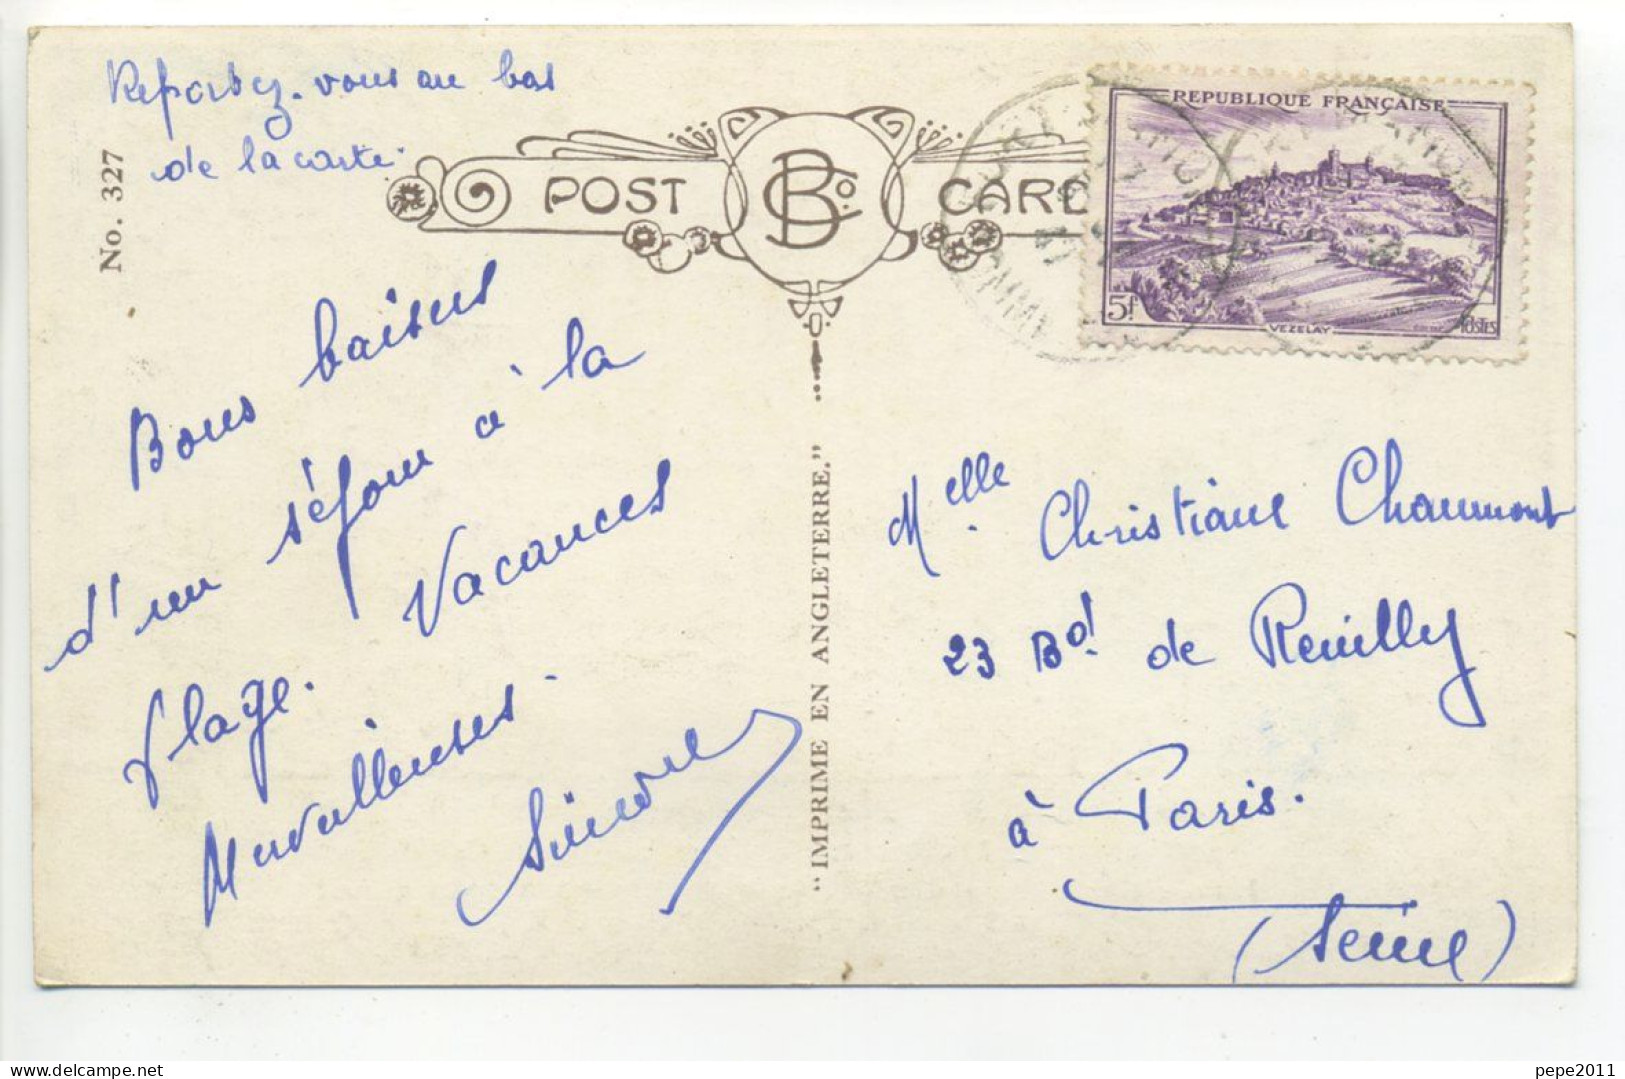 Reportez-vous au bas
de la carte.
No. 327
POST BCo. CARD
REPUBLIQUE FRANÇAISE
5f
VEZELAY
POSTES
Bons baisers
d'un séjour à la
plage. Vacances
Merveilleuses.
"IMPRIME EN ANGLETERRE."
Melle. Christiane Chaumont
23 Bd. de Reuilly
à Paris.
(Seine)
pepe2011